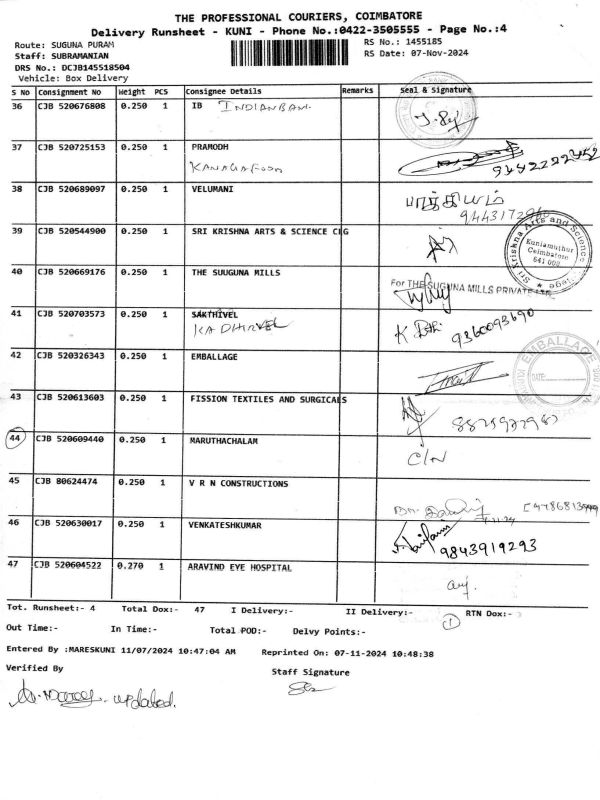 THE PROFESSIONAL COURIERS, COIMBATORE
Delivery Runsheet - KUNI - Phone No.:0422-3505555 - Page No.:4
Route: SUGUNA PURAM
RS No.: 1455185
Staff: SUBRAMANIAN
RS Date: 07-Nov-2024
DRS No.: DCJB145518504
Vehicle: Box Delivery
S No Consignment No Weight PCS Consignee Details Remarks Seal & Signature
36 CJB 520676808 0.250 1 IB INDIANBANK
37 CJB 520725153 0.250 1 PRAMODH
KANAGAFOOM
38 CJB 520689097 0.250 1 VELUMANI
பாக்கியம்
39 CJB 520544900 0.250 1 SRI KRISHNA ARTS & SCIENCE CLG
Sri Krishna Arts and Science College
Kuniamuthur
Coimbatore
641 008
40 CJB 520669176 0.250 1 THE SUUGUNA MILLS
For THE SUGUNA MILLS PRIVATE LTD.
41 CJB 520703573 0.250 1 SAKTHIVEL
KADHIRVEL
K. 9360093690
42 CJB 520326343 0.250 1 EMBALLAGE
EMBALLAGE
DATE:
43 CJB 520613603 0.250 1 FISSION TEXTILES AND SURGICALS
44 CJB 520609440 0.250 1 MARUTHACHALAM
C/N
45 CJB 80624474 0.250 1 V R N CONSTRUCTIONS
46 CJB 520630017 0.250 1 VENKATESHKUMAR
9843919293
47 CJB 520604522 0.270 1 ARAVIND EYE HOSPITAL
Tot. Runsheet:- 4 Total Dox:- 47 I Delivery:- II Delivery:- RTN Dox:-
1
Out Time:- In Time:- Total POD:- Delvy Points:-
Entered By :MARESKUNI 11/07/2024 10:47:04 AM Reprinted On: 07-11-2024 10:48:38
Verified By
Staff Signature
updated.